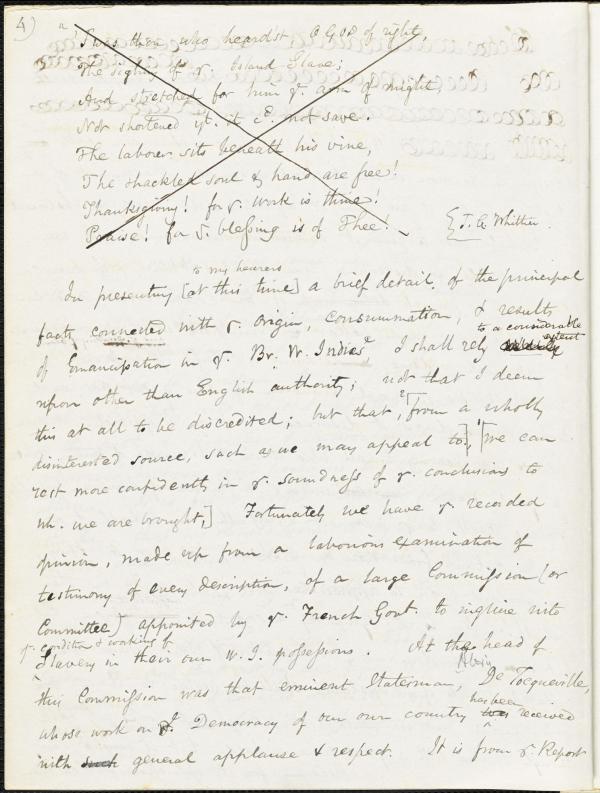 4)
'Twas thou who heardst, O God of right,
The sighing of yᵉ Island Slave;
And stretched for him yᵉ arm of might,
Not shortened yt. it cd. not save.
The laborer sits beneath his vine,
The shackled soul & hand are free!
Thanksgiving! for yᵉ work is thine!
Praise! for yᵉ blessing is of Thee!
J. G. Whittier.
to my hearers
In presenting [at this time] a brief detail, of the principal
facts connected with yᵉ origin, consummation, & results
to a considerable extent
of Emancipation in yᵉ Br. W. Indies, I shall rely
upon other than English authority; not that I deem
this at all to be discredited; but that, ²[from a wholly
disinterested source, such as we may appeal to], ¹[we can
rest more confidently in yᵉ soundness of yᵉ conclusions to
wh. we are brought,] Fortunately we have yᵉ recorded
opinion, made up from a laborious examination of
testimony of every description, of a large Commission (or
Committee) appointed by yᵉ French Govt. to inquire into
yᵉ condition & working of
Slavery in their own W. I. possessions. At the head of
this Commission was that eminent Statesman, De Tocqueville,
has been
whose work on yᵉ Democracy of our own country was received
with such general applause & respect. It is from yᵉ Report